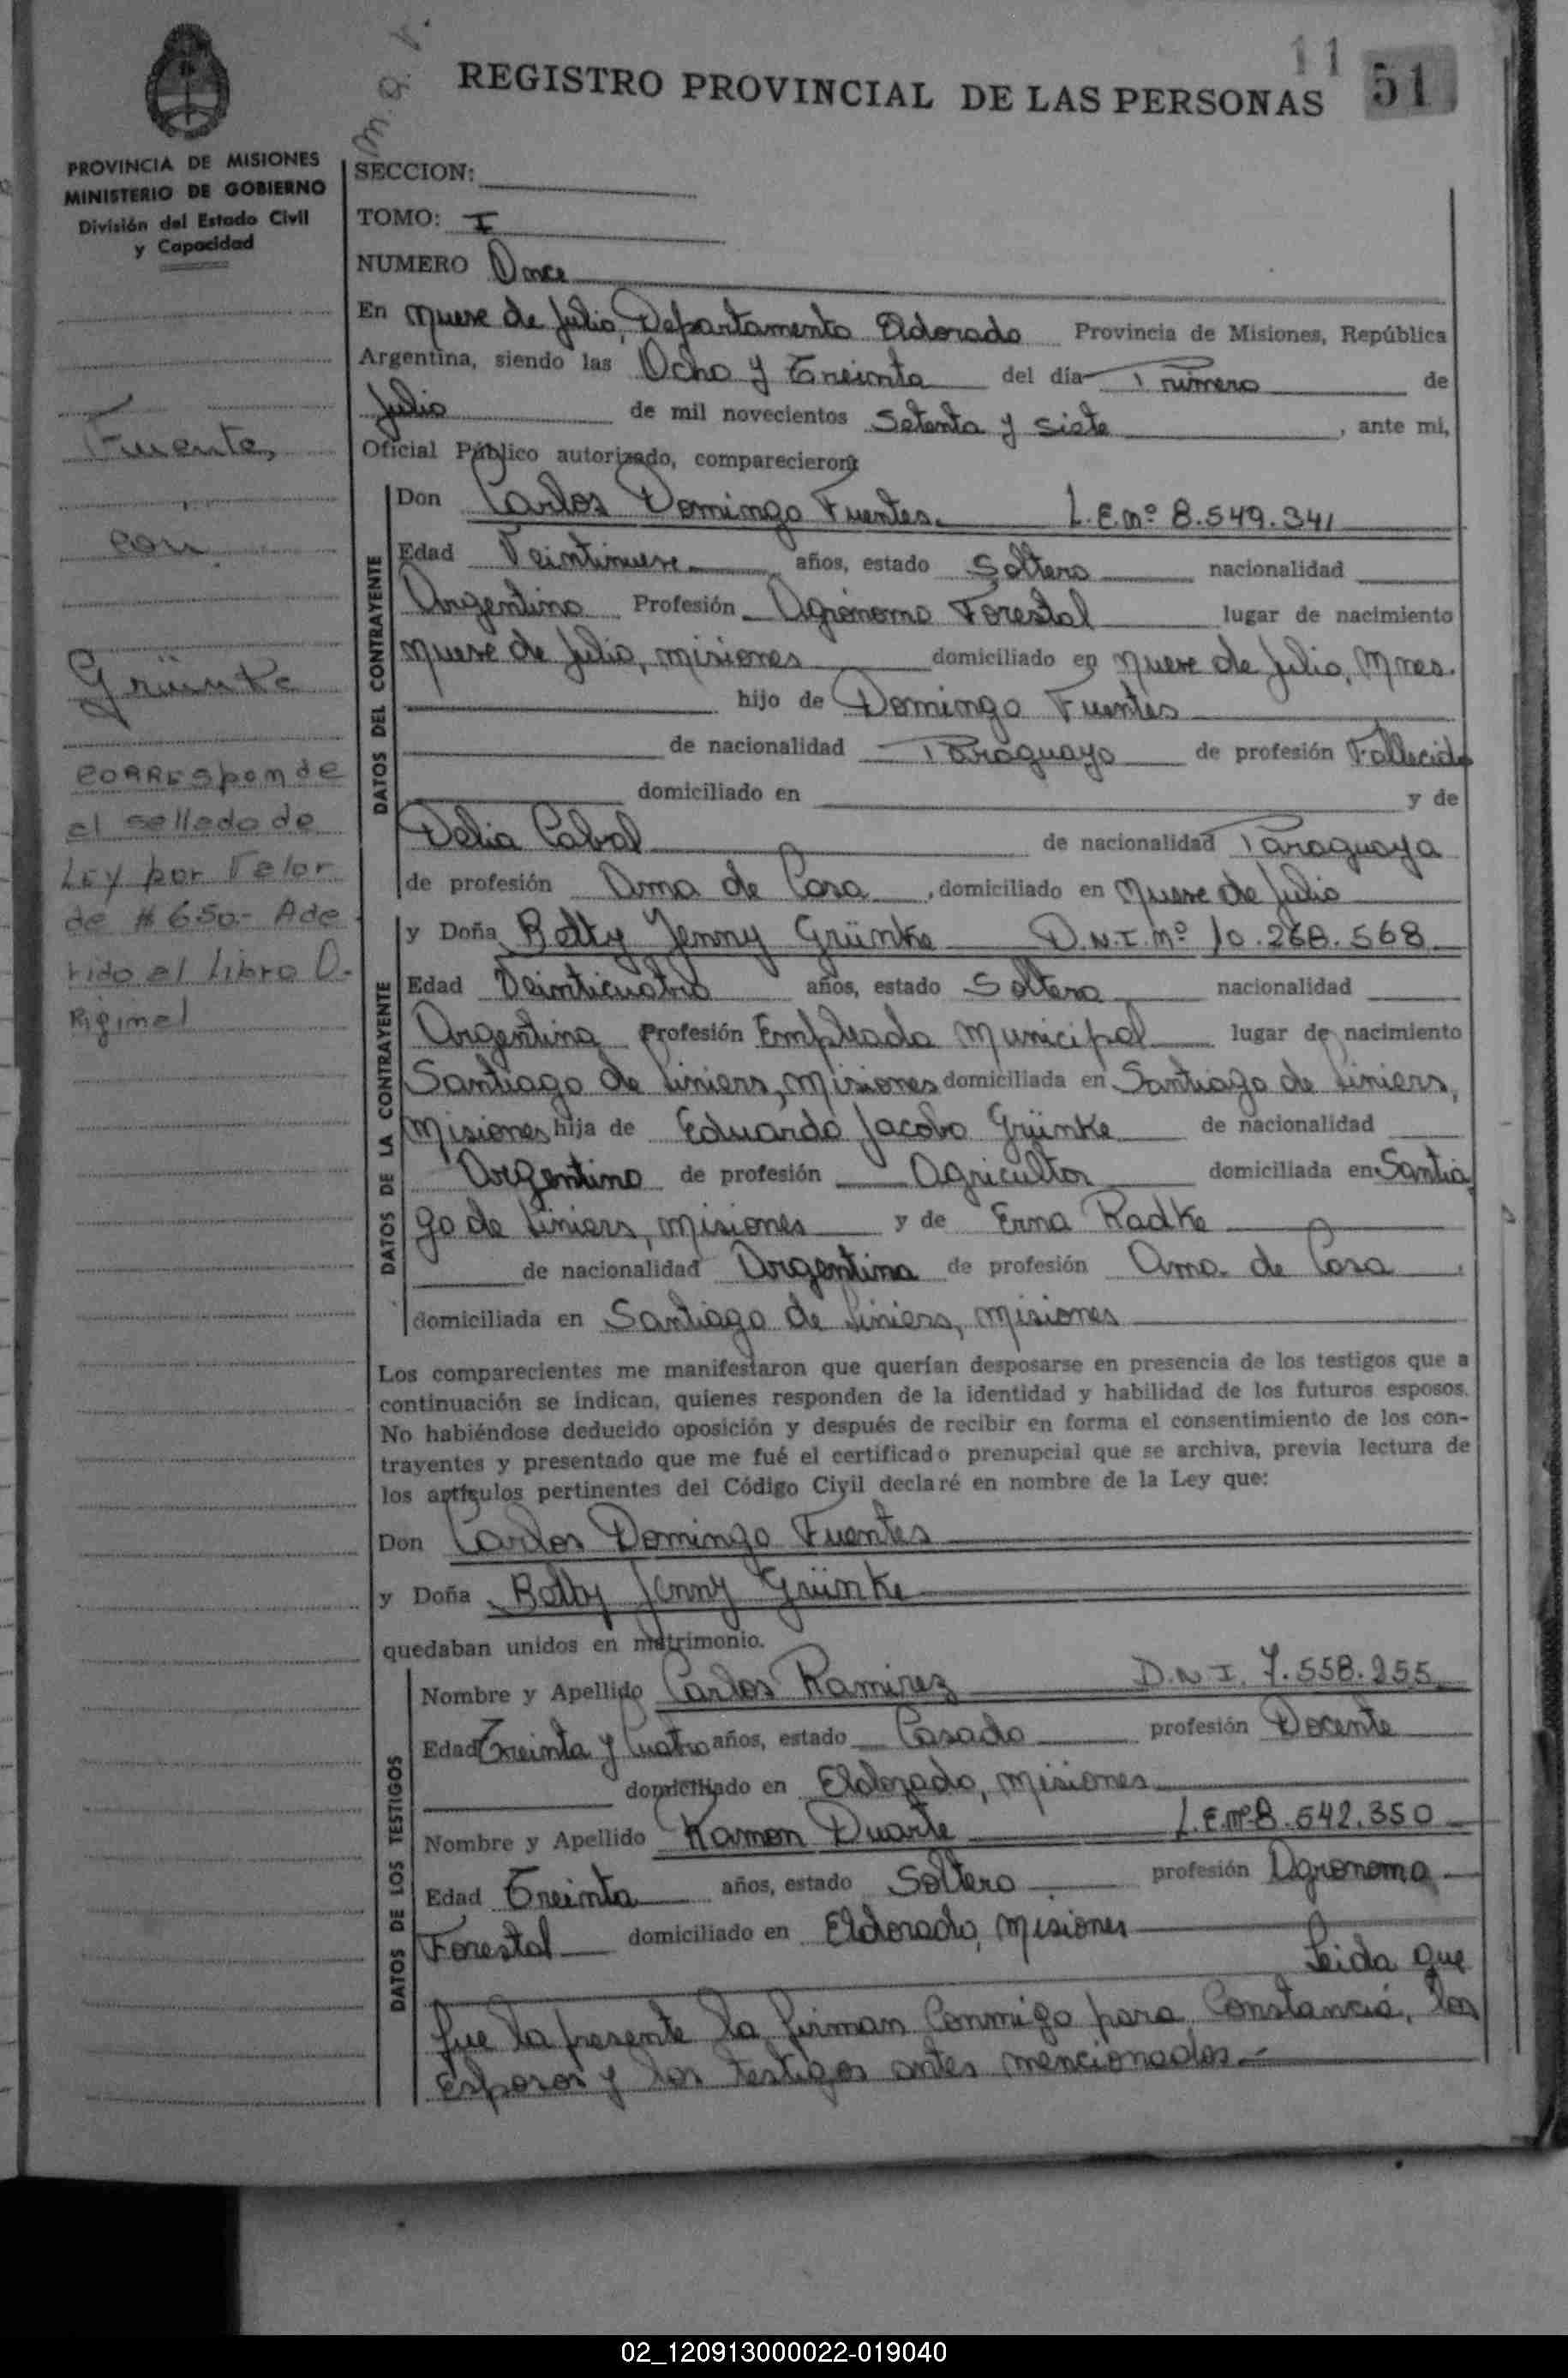 11 51
m. g. r.
REGISTRO PROVINCIAL DE LAS PERSONAS
PROVINCIA DE MISIONES
MINISTERIO DE GOBIERNO
División del Estado Civil
y Capacidad
Fuentes
con
Grünke
CORResponde
el sellado de
Ley por Valor
de $ 650.- Ade
rido al Libro O-
Riginal
SECCION:
TOMO: I
NUMERO Once
En Nueve de Julio, Departamento Eldorado Provincia de Misiones, República
Argentina, siendo las Ocho y Treinta del día Primero de
Julio de mil novecientos Setenta y Siete, ante mi,
Oficial Público autorizado, comparecieron:
DATOS DEL CONTRAYENTE
Don Carlos Domingo Fuentes. L.E.Nº 8.549.341
Edad Veintinueve años, estado Soltero nacionalidad
Argentino Profesión Agrónomo Forestal lugar de nacimiento
Nueve de Julio, Misiones domiciliado en Nueve de Julio, Mnes.
hijo de Domingo Fuentes
de nacionalidad Paraguayo de profesión Fallecido
domiciliado en y de
Delia Cabral de nacionalidad Paraguaya
de profesión Ama de Casa, domiciliado en Nueve de Julio
DATOS DE LA CONTRAYENTE
y Doña Betty Jenny Grünke D.N.I. Nº 10.268.568
Edad Veinticuatro años, estado Soltera nacionalidad
Argentina Profesión Empleada Municipal lugar de nacimiento
Santiago de Liniers, Misiones domiciliada en Santiago de Liniers,
Misiones hija de Eduardo Jacobo Grünke de nacionalidad
Argentino de profesión Agricultor domiciliada en Santia
go de Liniers, Misiones y de Erna Radke
de nacionalidad Argentina de profesión Ama de Casa,
domiciliada en Santiago de Liniers, Misiones
Los comparecientes me manifestaron que querían desposarse en presencia de los testigos que a
continuación se indican, quienes responden de la identidad y habilidad de los futuros esposos.
No habiéndose deducido oposición y después de recibir en forma el consentimiento de los con-
trayentes y presentado que me fué el certificado prenupcial que se archiva, previa lectura de
los artículos pertinentes del Código Civil declaré en nombre de la Ley que:
Don Carlos Domingo Fuentes
y Doña Betty Jenny Grünke
quedaban unidos en matrimonio.
DATOS DE LOS TESTIGOS
Nombre y Apellido Carlos Ramirez D.N.I. 7.558.255
Edad Treinta y Cuatro años, estado Casado profesión Docente
domiciliado en Eldorado, Misiones
Nombre y Apellido Ramon Duarte L.E.Nº 8.542.350
Edad Treinta años, estado Soltero profesión Agronomo
Forestal domiciliado en Eldorado, Misiones
Leida que
fue la presente la firman Conmigo para Constancia, los
Esposos y los testigos antes mencionados.-
02_120913000022-019040